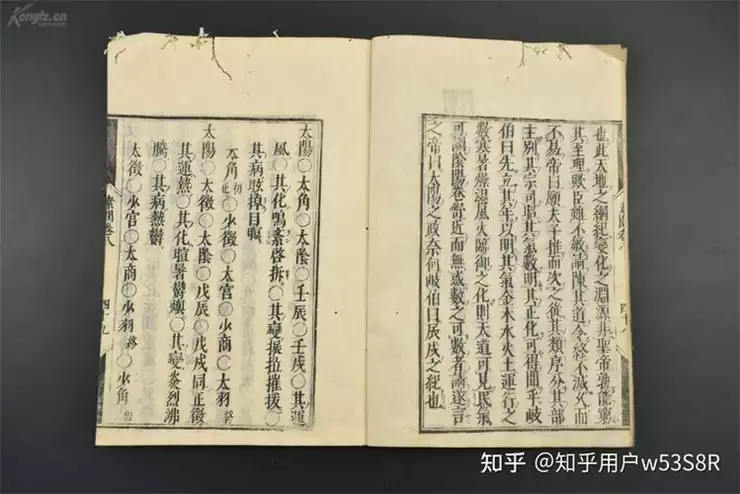 Kongfz.cn
也此天地之綱紀變化之淵源非聖帝孰能窮
其至理歟臣雖不敏請陳其道令終不滅久而
不易帝曰願夫子推而次之從其類序分其部
主別其宗司昭其氣數明其正化可得聞乎歧
伯曰先立其年以明其氣金木水火土運行之
數寒暑燥濕風火臨御之化則天道可見民氣
可調陰陽卷舒近而無惑數之可數者請遂言
之帝曰太陽之政奈何歧伯曰辰戌之紀也
太陽〇太角〇太陰〇壬辰〇壬戌〇其運
風〇其化鳴紊啓拆。其變振拉摧拔〇
其病眩掉目瞑
太角初正〇少徵〇太宮〇少商〇太羽終
太陽〇太徵〇太陰〇戊辰〇戊戌同正徵
其運熱〇其化暄暑鬱燠〇其變炎烈沸
騰〇其病熱鬱。
太徵〇少宮〇太商〇少羽終〇少角初
素問卷八 四十九
知乎 @知乎用户w53S8R